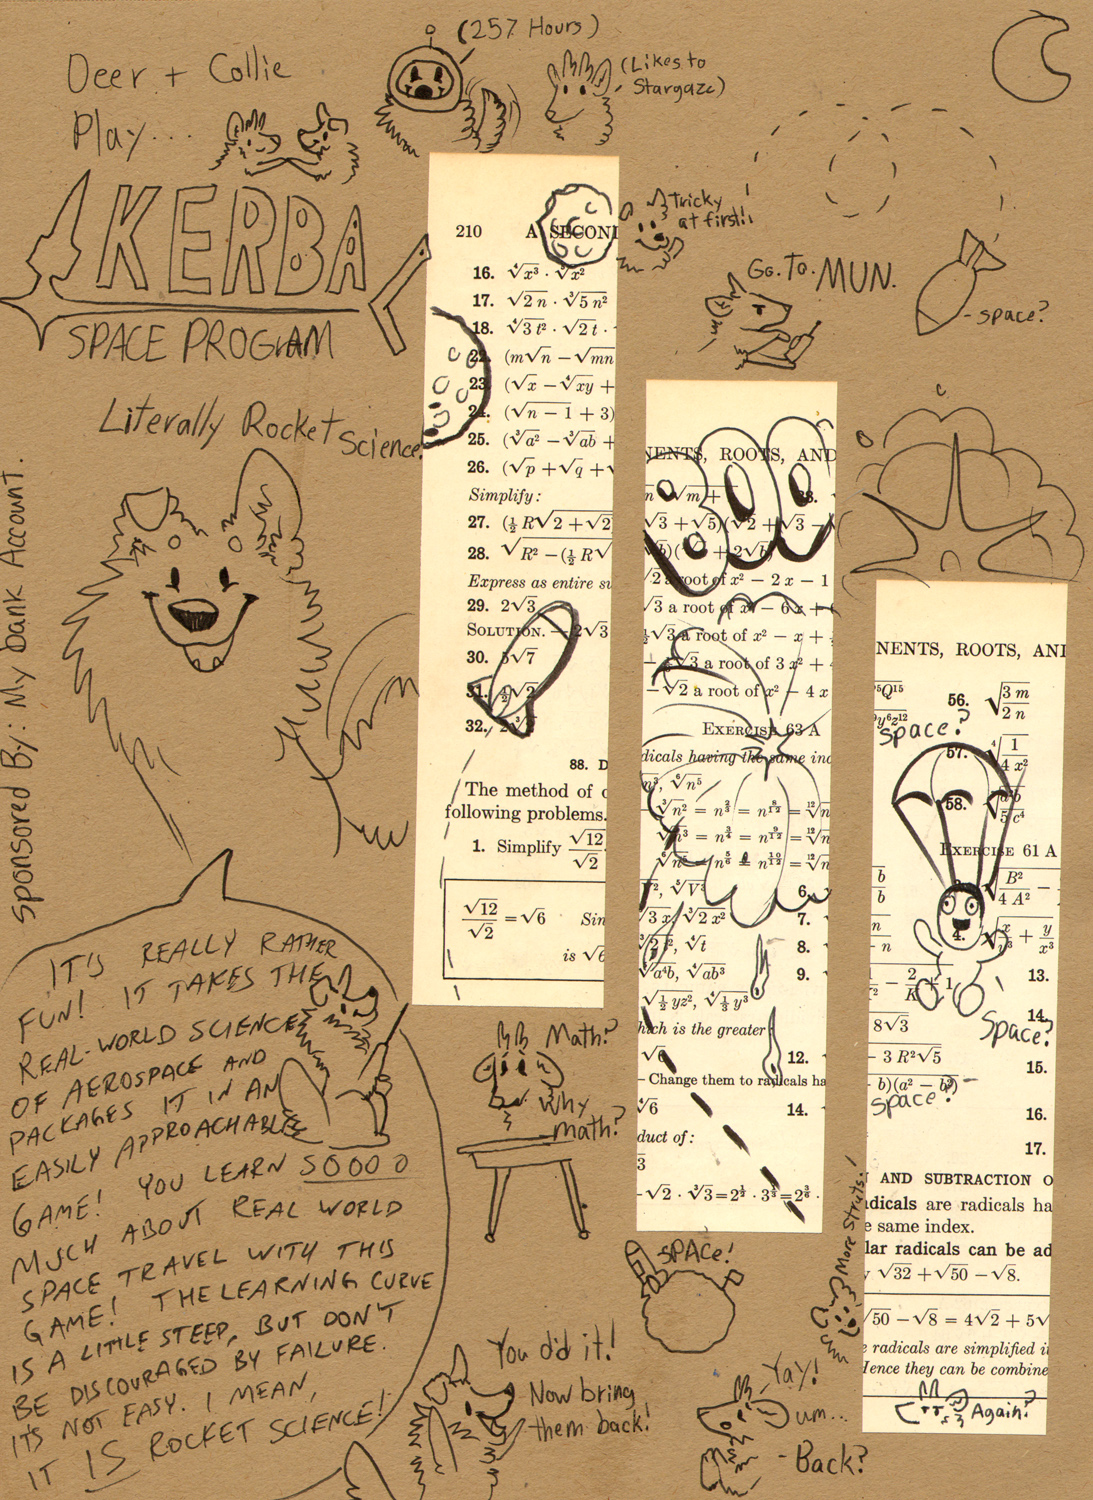 Deer + Collie
Play...
KERBAL
SPACE PROGRAM
(257 Hours)
(Likes to
Stargaze)
Tricky
at first!!
Go. To. MUN.
- space?
Literally Rocket Science.
Sponsored By: My bank Account.
210
A SECOND
16. ∜x³ ·
17. √2n · ∛5n²
18. ∜3t² · √2t ·
22. (m√n − √mn
23. (√x − ∜xy +
24. (√n − 1 + 3)
25. (∛a² − ∛ab +
26. (√p + √q + √
Simplify:
27. (½ R√2 + √2
28. √R² − (½ R√
Express as entire su
29. 2√3
SOLUTION. 2√3
30. 5√7
31.
32.
88. D
The method of
following problems.
1. Simplify √12/√2
√12/√2 = √6 Sin
is √6
NENTS, ROOTS, AND
38.
√3 + √5)(√2 + √3 −
√2 a root of x² − 2x − 1
√3 a root of x² − 6x +
√3 a root of x² − x +
√3 a root of 3x² +
− √2 a root of x² − 4x
EXERCISE 63 A
dicals having the same ind
n³, ⁶√n⁵
6.
7.
8.
9.
hich is the greater
12.
− Change them to radicals ha
∜6
14.
duct of:
3
NENTS, ROOTS, AND
56. √3m/2n
space?
57. ∜1/4x²
58.
EXERCISE 61 A
4.
13.
14.
8√3
Space?
− 3 R²√5
15.
− b)(a² − b²)
space?
16.
17.
AND SUBTRACTION O
adicals are radicals ha
e same index.
lar radicals can be ad
√32 + √50 − √8.
√50 − √8 = 4√2 + 5√
e radicals are simplified i
Hence they can be combine
Again?
IT'S REALLY RATHER
FUN! IT TAKES THE
REAL-WORLD SCIENCE
OF AEROSPACE AND
PACKAGES IT IN AN
EASILY APPROACHABLE
GAME! YOU LEARN SOOOO
MUCH ABOUT REAL WORLD
SPACE TRAVEL WITH THIS
GAME! THE LEARNING CURVE
IS A LITTLE STEEP, BUT DON'T
BE DISCOURAGED BY FAILURE.
IT'S NOT EASY. I MEAN,
IT IS ROCKET SCIENCE!
Math?
Why
math?
SPACE!
More Struts!
You did it!
Now bring
them back!
Yay!
um...
- Back?